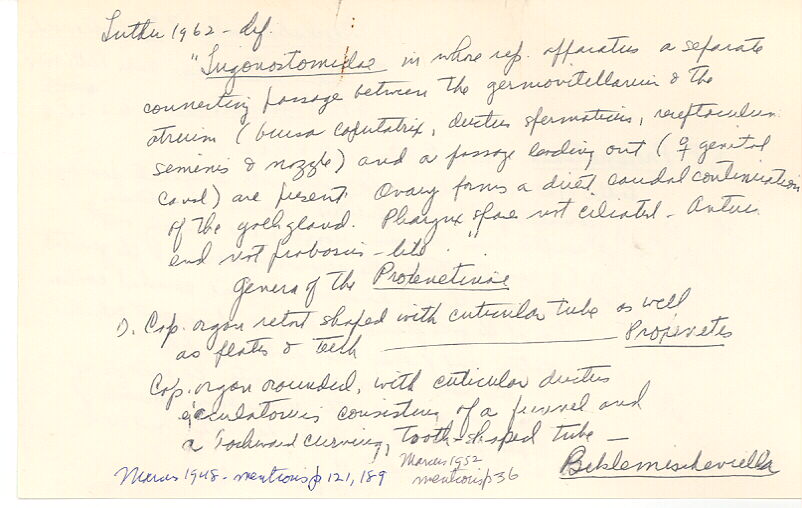 Luther 1962 - def.
"Trigonostomidae in whose rep. apparatus a separate
connecting passage between the germovitellarium & the
atrium (bursa copulatrix, ductus spermaticus, receptaculum
seminis & nozzle) and a passage leading out (♀ genital
canal) are present. Ovary forms a direct caudal continuation
of the yolk gland. Pharynx space not ciliated - Anterior
end not proboscis-like."
Genera of the Proxenetinae
1. Cop. organ retort shaped with cuticular tube as well
as plates & teeth Proxenetes
Cop. organ rounded, with cuticular ductus
ejaculatorius consisting of a funnel and
a backward curving, tooth-shaped tube —
Beklemischeviella
Marcus 1948 - mentions p 121, 189
Marcus 1952
mentions p 36